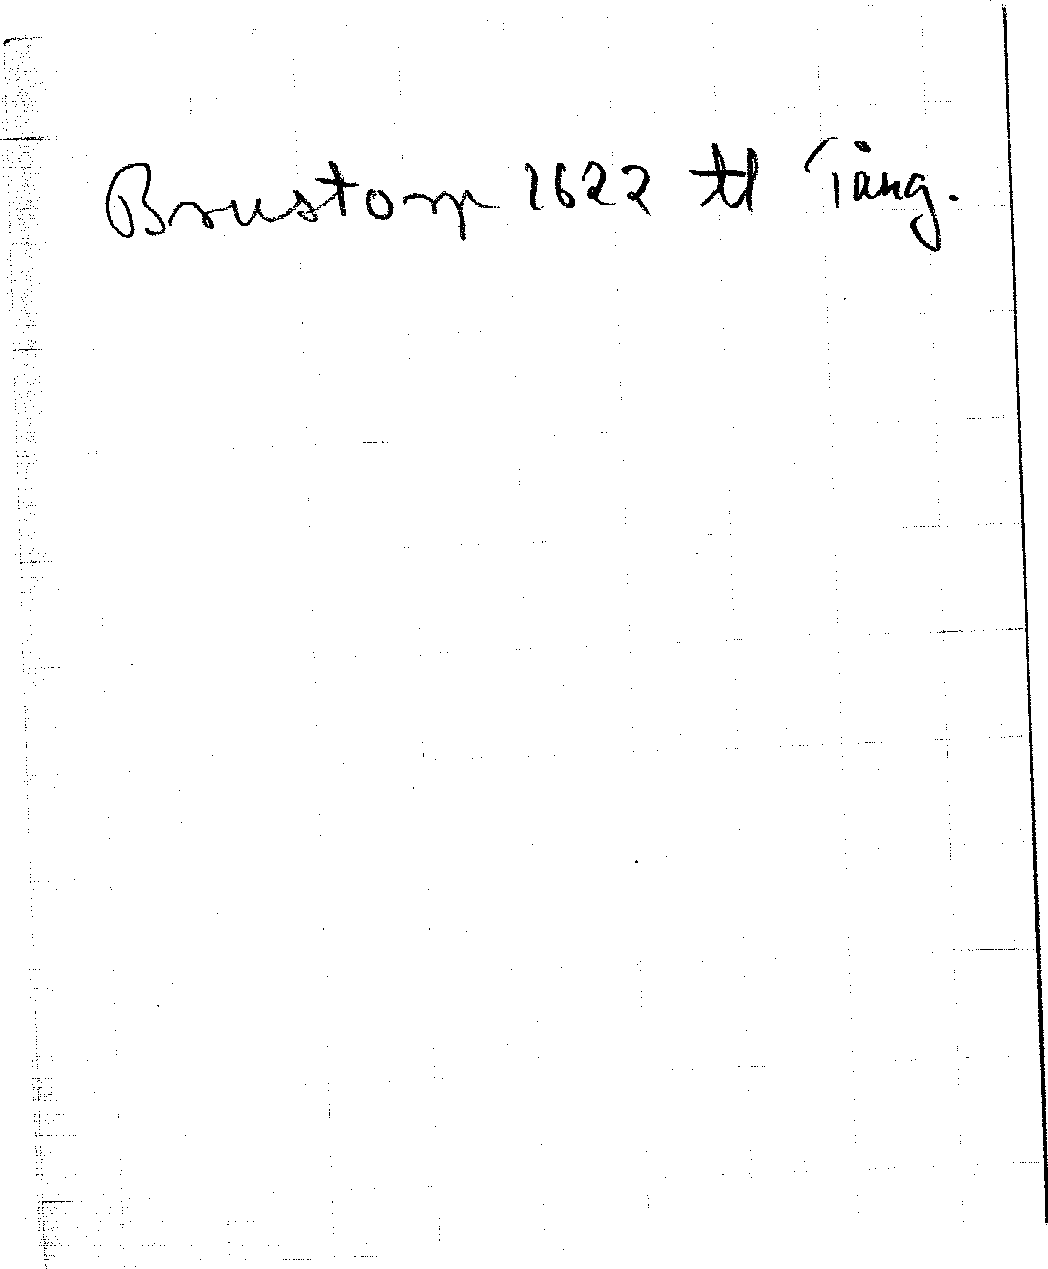 Brustorp 1622 tl Tång.